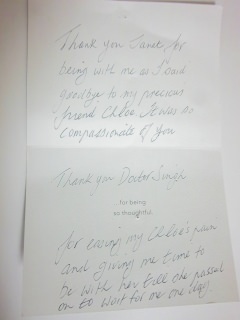 Thank you Janet, for
being with me as I said
goodbye to my precious
friend Chloe. It was so
compassionate of you
Thank you Doctor Singh
for being
so thoughtful
for easing my Chloe's pain
and giving me time to
be with her till she passed
on to wait for me one day.